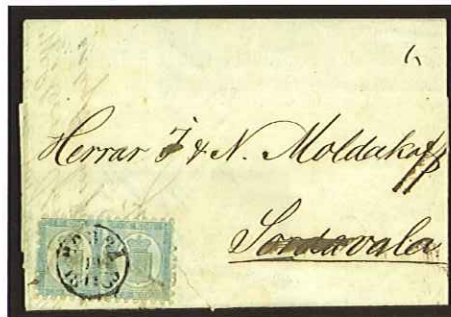 Herrar J & N. Moldakoff
Sordavala